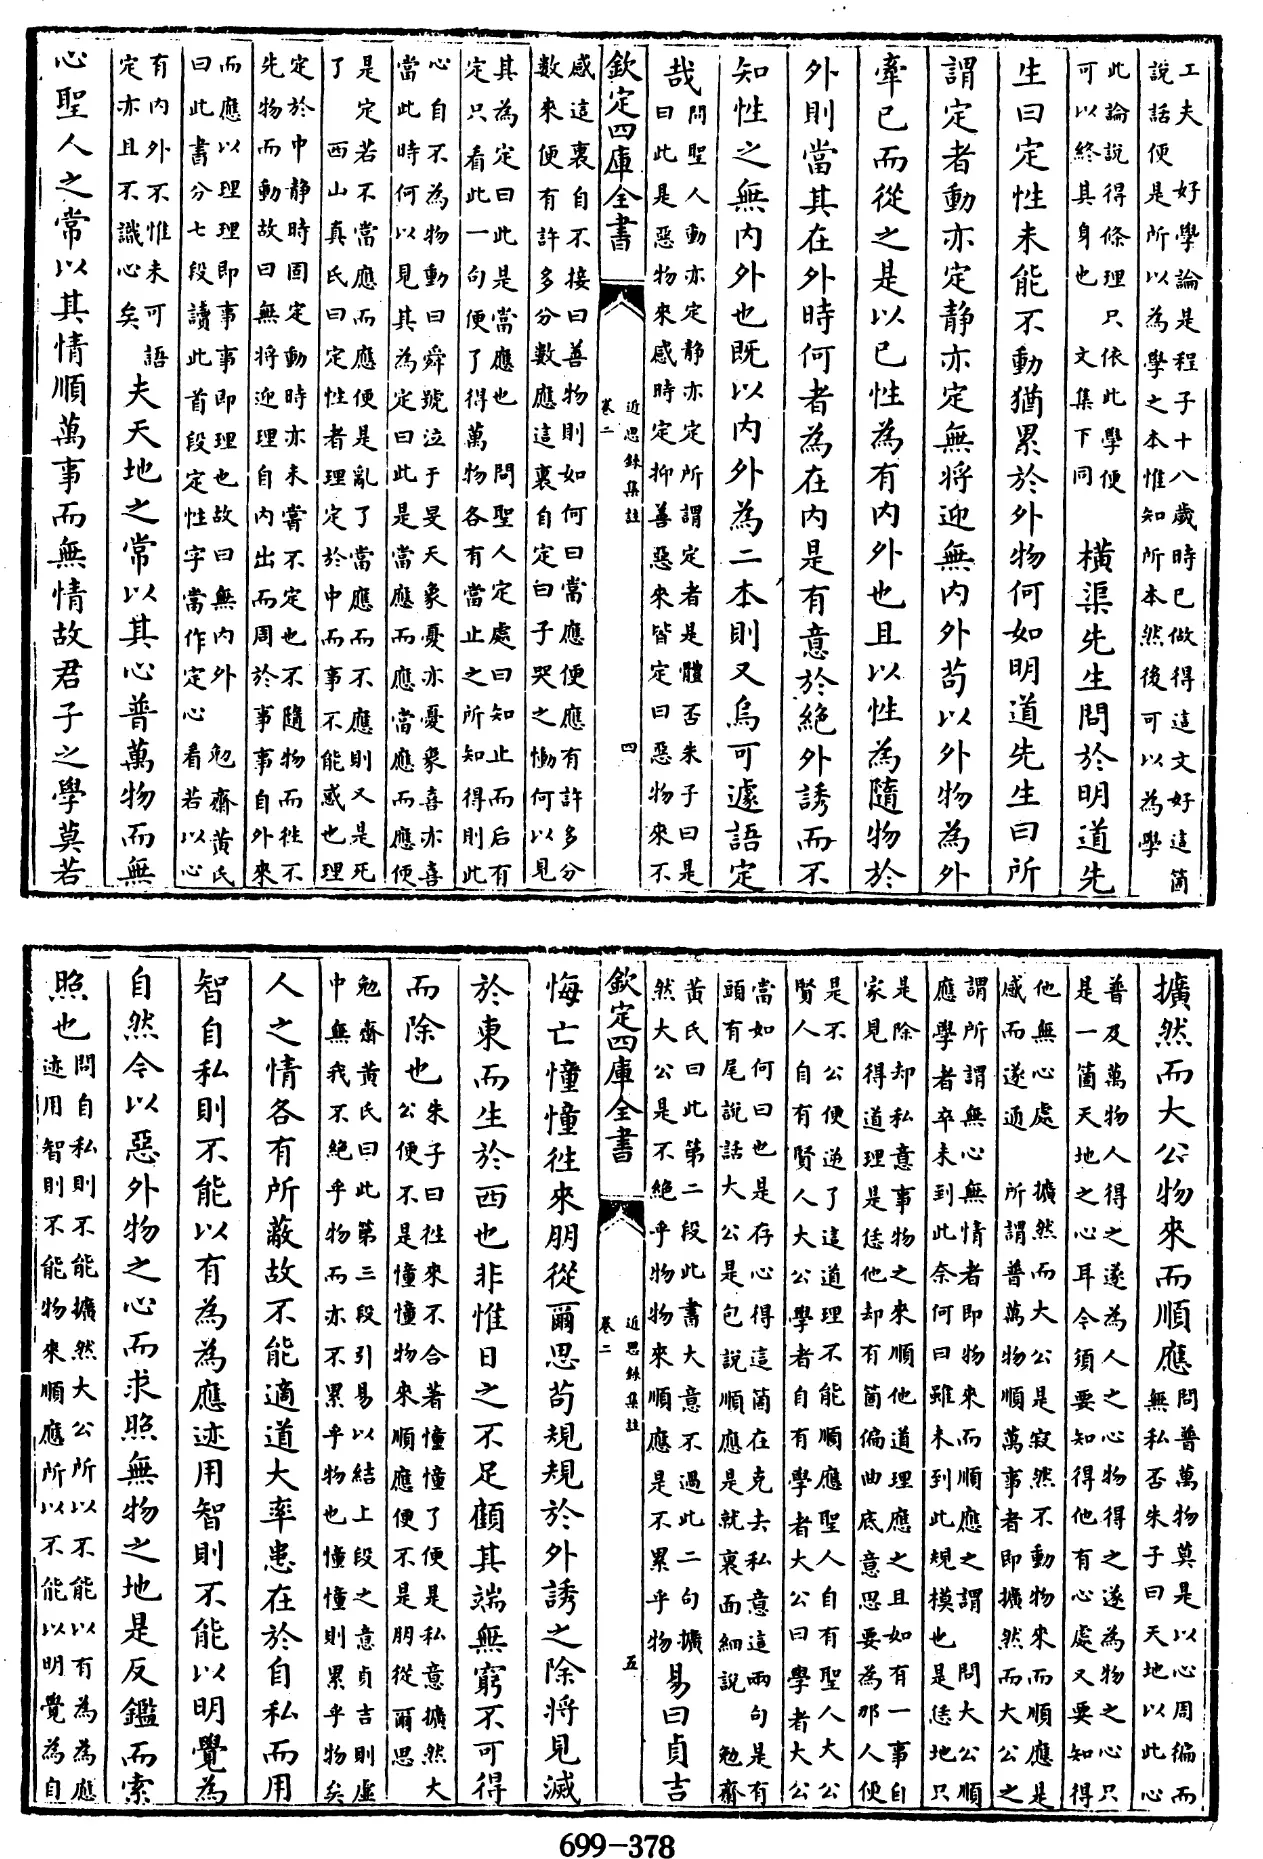 工夫　好學論是程子十八歲時已做得這文好這箇
說話便是所以為學之本惟知所本然後可以為學
此論說得條理只依此學便
可以終其身也　文集下同
橫渠先生問於明道先
生曰定性未能不動猶累於外物何如明道先生曰所
謂定者動亦定静亦定無將迎無内外苟以外物為外
牽已而從之是以已性為有内外也且以性為隨物於
外則當其在外時何者為在内是有意於絶外誘而不
知性之無内外也既以内外為二本則又烏可遽語定
哉
問聖人動亦定静亦定所謂定者是體否朱子曰是
曰此是惡物來感時定抑善惡來皆定曰惡物來不
欽定四庫全書
近思録集註
卷二
四
感這裏自不接曰善物則如何曰當應便應有許多分
數來便有許多分數應這裏自定曰子哭之慟何以見
其為定曰此是當應也　問聖人定處曰知止而后有
定只看此一句便了得萬物各有當止之所知得則此
心自不為物動曰舜號泣于旻天象憂亦憂象喜亦喜
當此時何以見其為定曰此是當應而應當應而應便
是定若不當應而應便是亂了當應而不應則又是死
了　西山真氏曰定性者理定於中而事不能惑也理
定於中静時固定動時亦未嘗不定也不隨物而往不
先物而動故曰無將迎理自内出而周於事事自外來
而應以理理即事事即理也故曰無内外　勉齋黄氏
曰此書分七段讀此首段定性字當作定心看若以心
有内外不惟未可語
定亦且不識心矣
夫天地之常以其心普萬物而無
心聖人之常以其情順萬事而無情故君子之學莫若
擴然而大公物來而順應
問普萬物莫是以心周徧而
無私否朱子曰天地以此心
普及萬物人得之遂為人之心物得之遂為物之心只
是一箇天地之心耳今須要知得他有心處又要知得
他無心處　擴然而大公是寂然不動物來而順應是
感而遂通　所謂普萬物順萬事者即擴然而大公之
謂所謂無心無情者即物來而順應之謂　問大公順
應學者卒未到此奈何曰雖未到此規模也是恁地只
是除却私意事物之來順他道理應之且如有一事自
家見得道理是恁他却有箇偏曲底意思要為那人便
是不公便逆了這道理不能順應聖人自有聖人大公
賢人自有賢人大公學者自有學者大公曰學者大公
當如何曰也是存心得這箇在克去私意這兩句是有
頭有尾說話大公是包說順應是就裏面細說　勉齋
黄氏曰此第二段此書大意不過此二句擴
然大公是不絶乎物物來順應是不累乎物
易曰貞吉
欽定四庫全書
近思録集註
卷二
五
悔亡憧憧往來朋從爾思苟規規於外誘之除將見滅
於東而生於西也非惟日之不足顧其端無窮不可得
而除也
朱子曰往來不合著憧憧了便是私意擴然大
公便不是憧憧物來順應便不是朋從爾思
勉齋黄氏曰此第三段引易以結上段之意貞吉則虚
中無我不絶乎物而亦不累乎物也憧憧則累乎物矣
人之情各有所蔽故不能適道大率患在於自私而用
智自私則不能以有為為應迹用智則不能以明覺為
自然今以惡外物之心而求照無物之地是反鑑而索
照也
問自私則不能擴然大公所以不能以有為為應
迹用智則不能物來順應所以不能以明覺為自
699-378